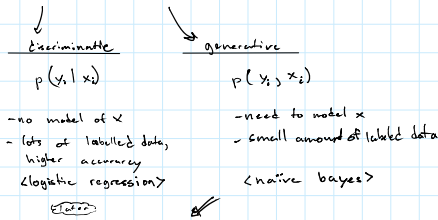 discriminative
p(yᵢ | xᵢ)
- no model of x
- lots of labelled data,
higher accuracy
<logistic regression>
later
generative
p(yᵢ, xᵢ)
- need to model x
- small amount of labeled data
<naïve bayes>